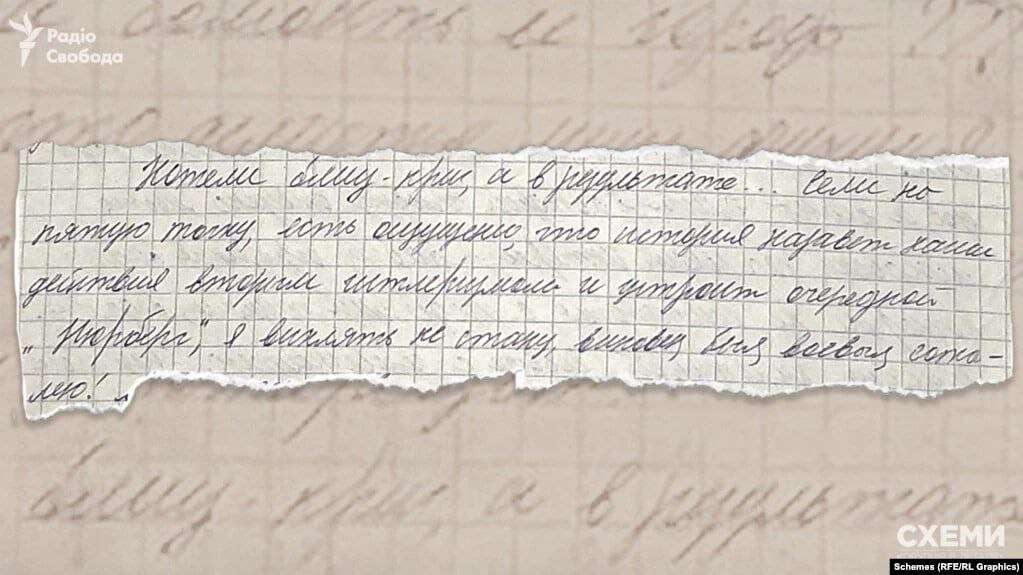 Радіо
Свобода
Хотели блиц-криг, а в результате... Сели на
пятую точку, есть ощущение, что история назовет наши
действия вторым гитлеризмом и устроит очередной
„Нюрберг", я вилять не стану, виновен, был, воевал, сожа-
лею!
блиц-криг, а в результат
СХЕМИ
Schemes (RFE/RL Graphics)